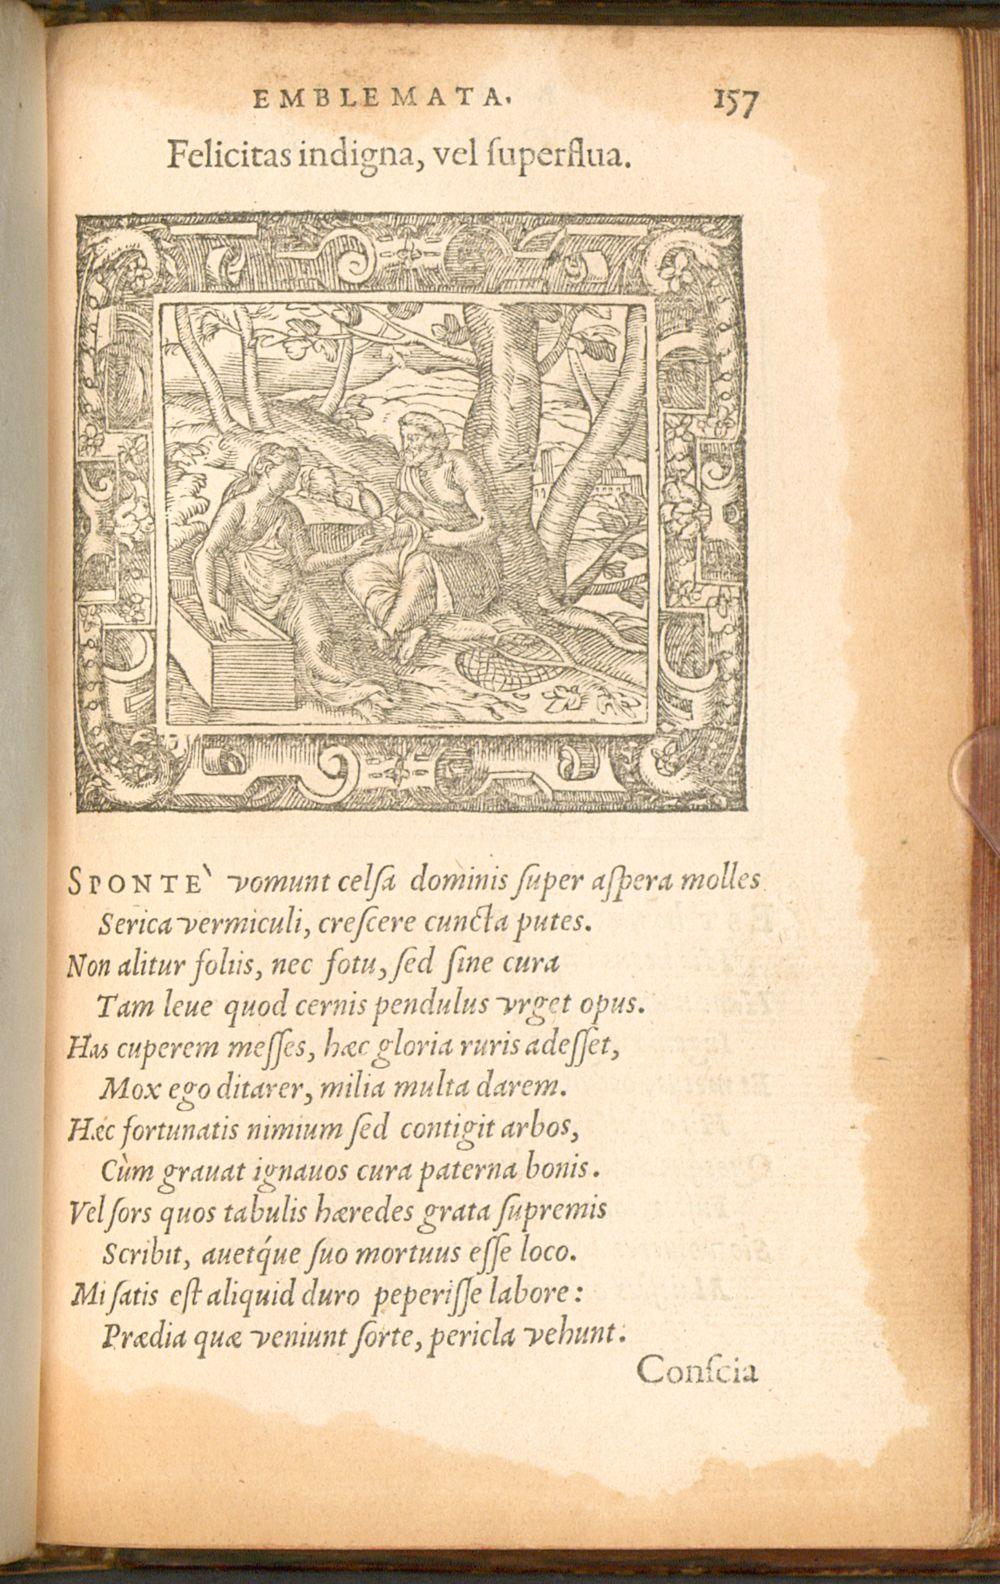 EMBLEMATA. 157
Felicitas indigna, vel ſuperflua.
SPONTE` vomunt celſa dominis ſuper aſpera molles
Serica vermiculi, creſcere cuncta putes.
Non alitur foliis, nec fotu, ſed ſine cura
Tam leue quod cernis pendulus vrget opus.
Has cuperem meſſes, hæc gloria ruris adeſſet,
Mox ego ditarer, milia multa darem.
Hæc fortunatis nimium ſed contigit arbos,
Cùm grauat ignauos cura paterna bonis.
Vel ſors quos tabulis hæredes grata ſupremis
Scribit, auetq́ue ſuo mortuus eſſe loco.
Mi ſatis eſt aliquid duro peperiſſe labore:
Prædia quæ veniunt ſorte, pericla vehunt.
Conſcia